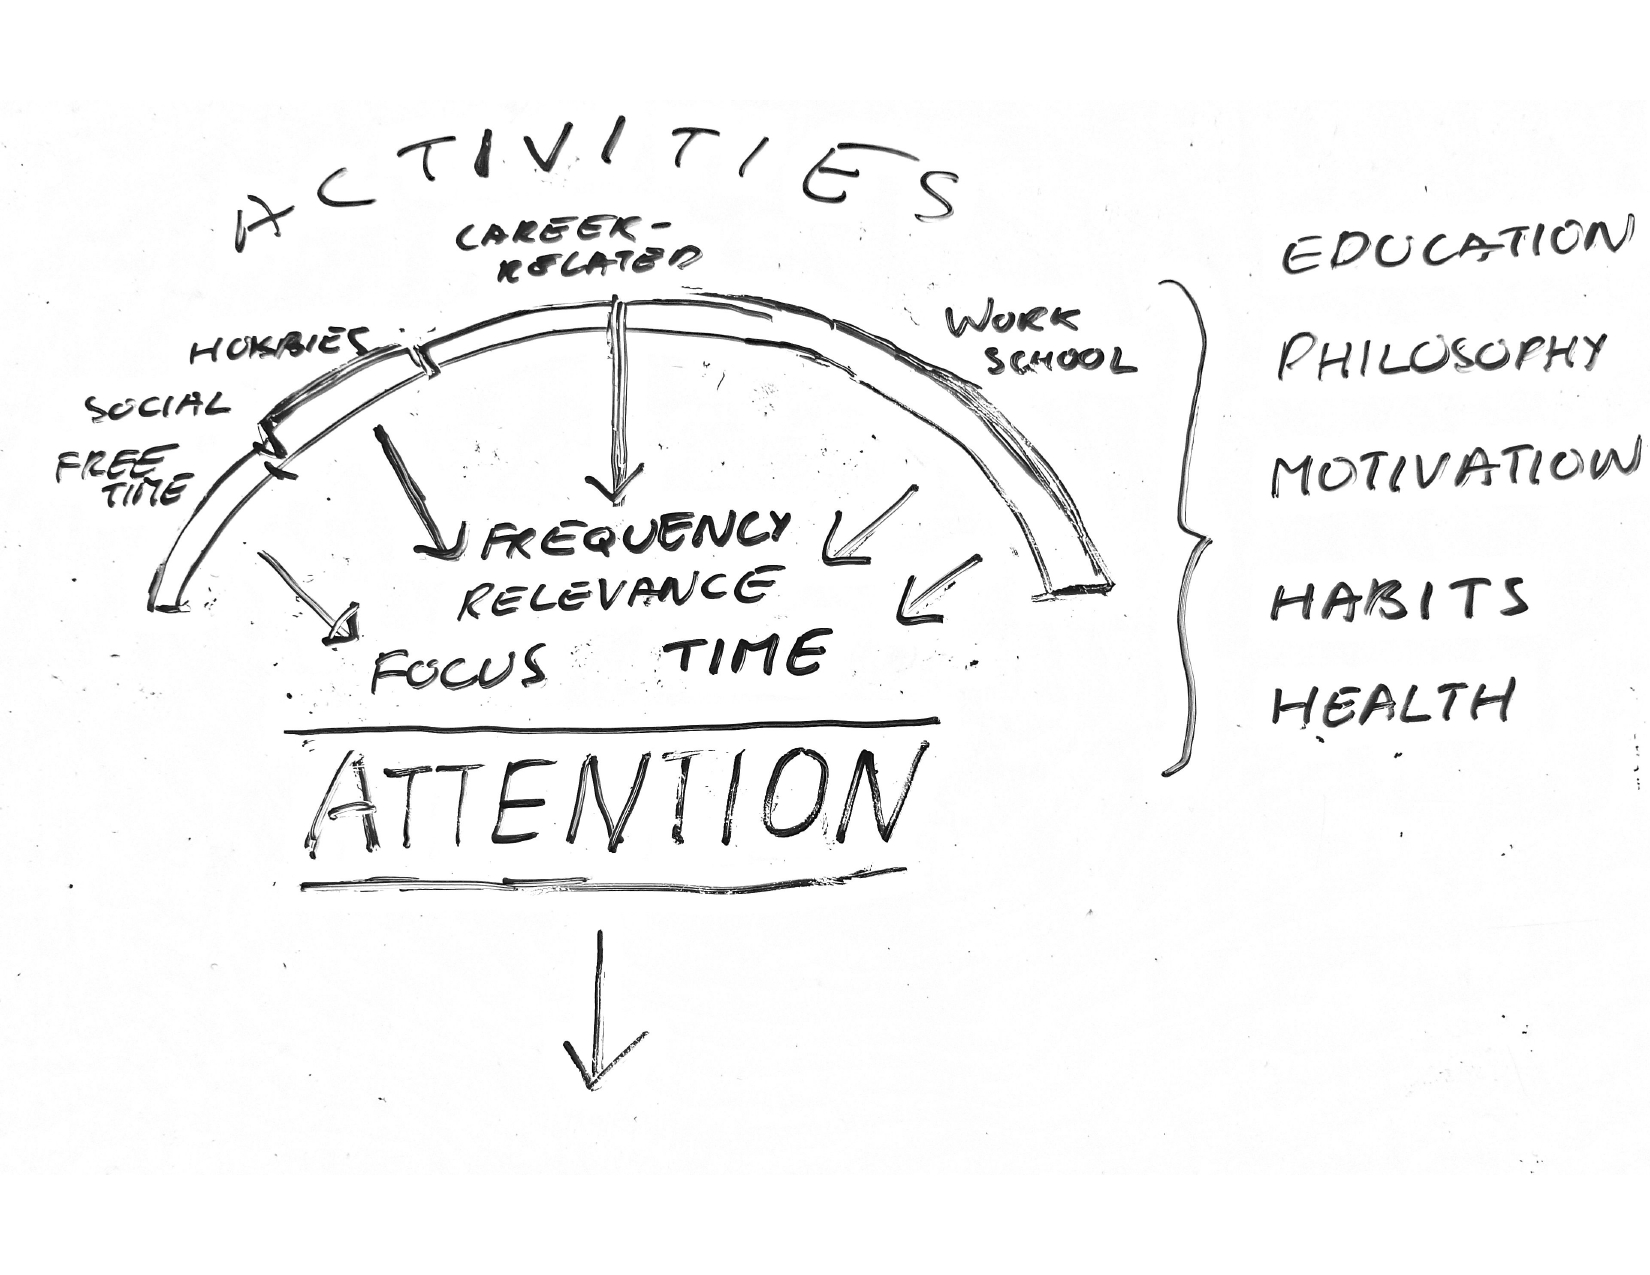 ACTIVITIES
CAREER-
RELATED
HOBBIES
SOCIAL
FREE
TIME
WORK
SCHOOL
FREQUENCY
RELEVANCE
FOCUS TIME
ATTENTION
EDUCATION
PHILOSOPHY
MOTIVATION
HABITS
HEALTH